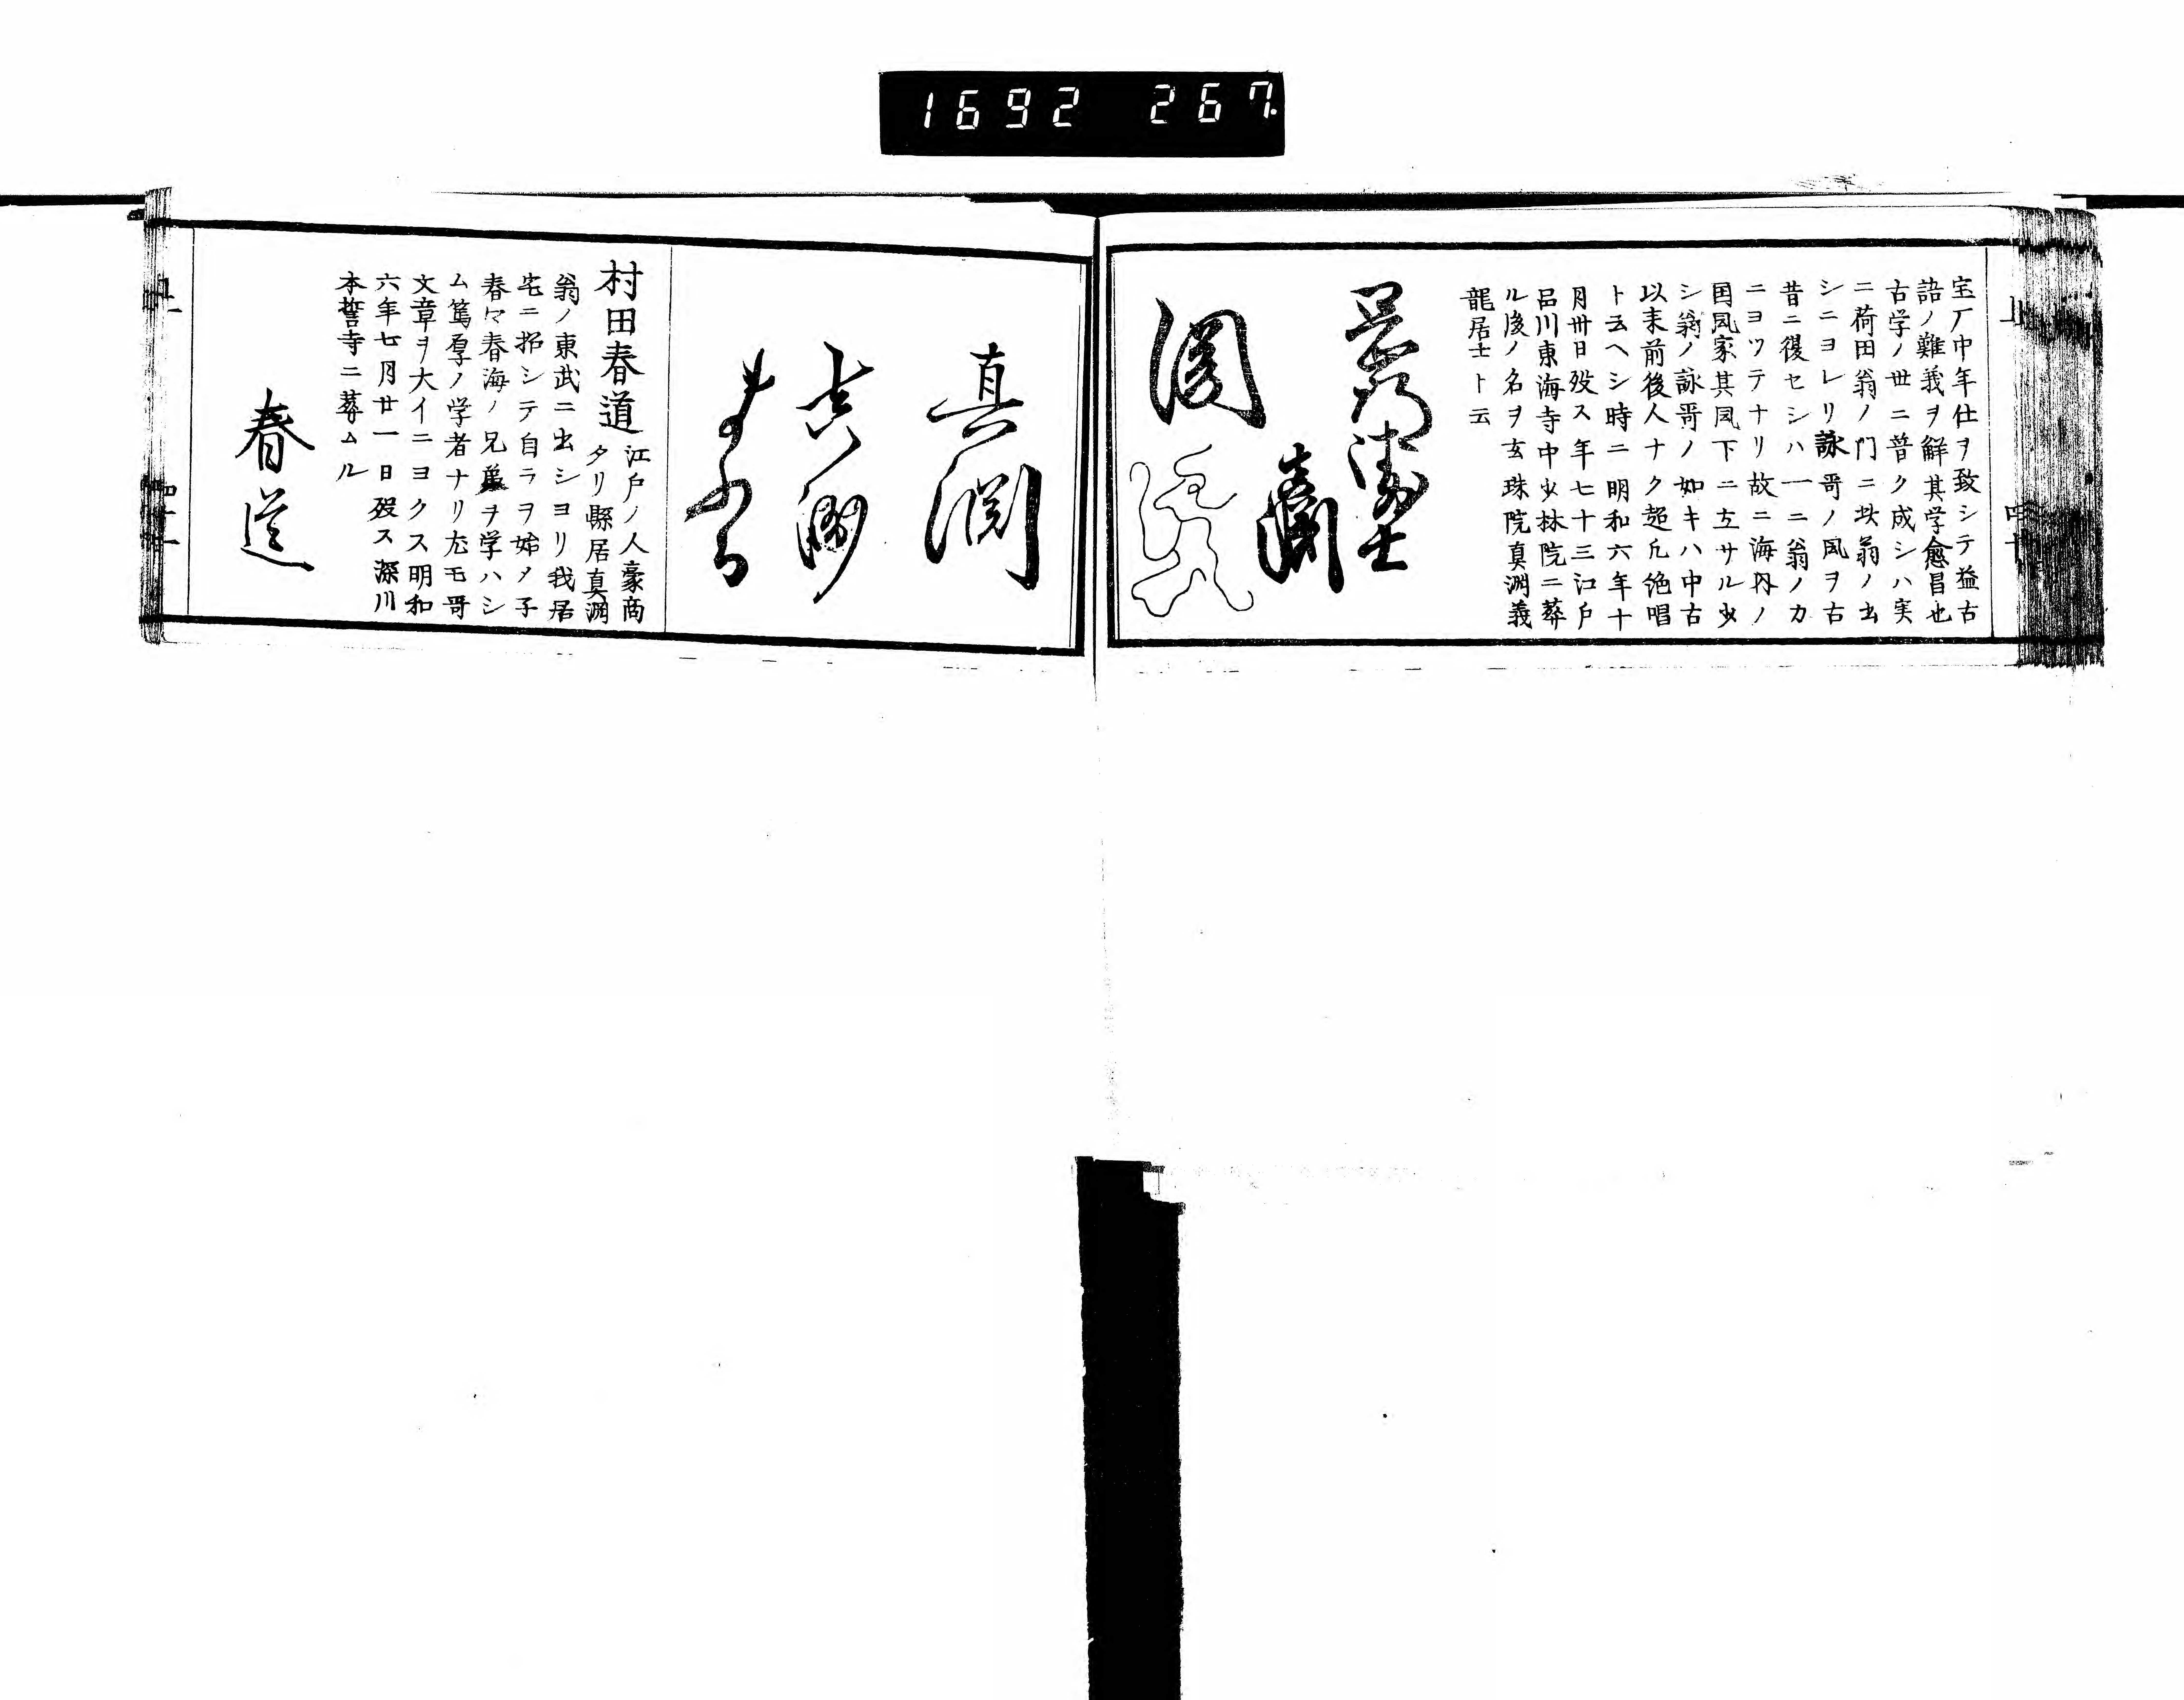 1692 267
宝厂中年仕ヲ致シテ益古
語ノ難義ヲ解其学愈昌也
古学ノ世ニ普ク成シハ実
ニ荷田翁ノ门ニ此翁ノ出
シニヨレリ詠哥ノ風ヲ古
昔ニ復セシハ一ニ翁ノカ
ニヨツテナリ故ニ海内ノ
国風家其風下ニ立サル少
シ翁ノ詠哥ノ如キハ中古
以来前後人ナク超凡絶唱
ト云ヘシ時ニ明和六年十
月卅日歿ス年七十三江戸
品川東海寺中少林院ニ葬
ル後ノ名ヲ玄珠院真渊義
龍居士ト云
真淵
真渊
村田春道
江戸ノ人豪商
タリ縣居真渊
翁ノ東武ニ出シヨリ我居
宅ニ招シテ自ラヲ始メ子
春々春海ノ兄弟ヲ学ハシ
ム篤厚ノ学者ナリ尤モ哥
文章ヲ大イニヨクス明和
六年七月廿一日歿ス深川
本誓寺ニ葬ムル
春道